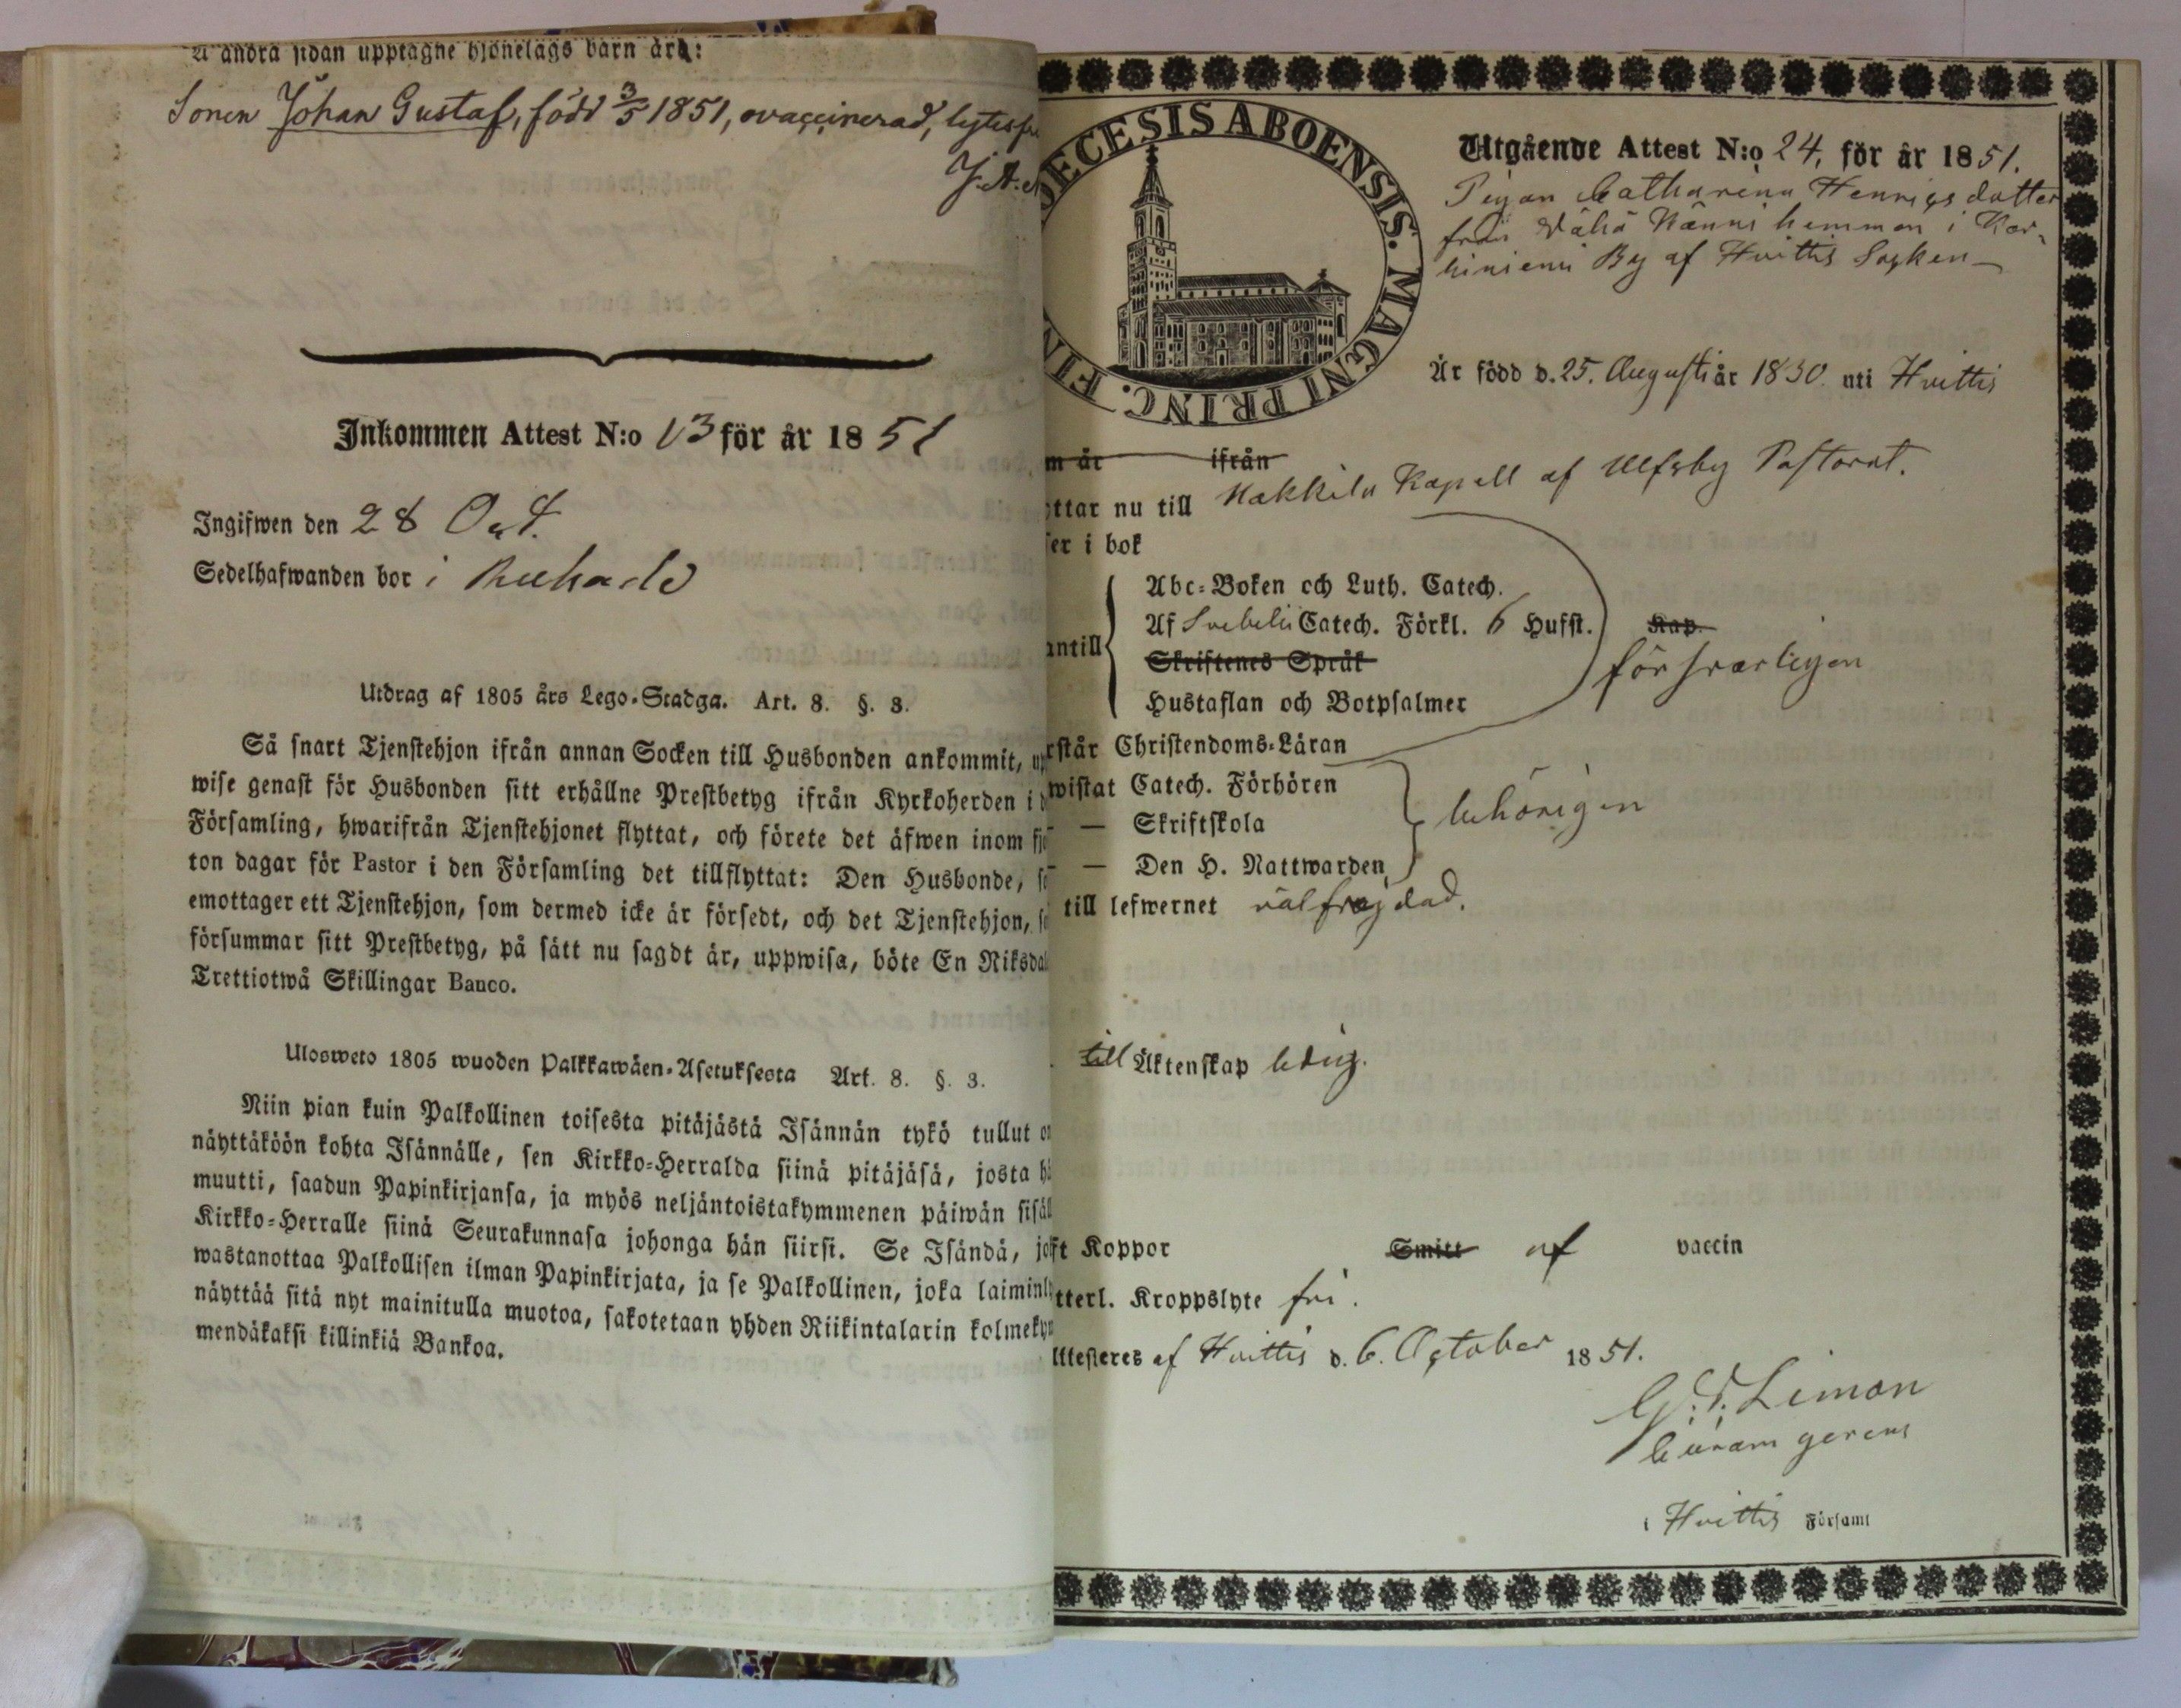 A andra sidan upptagne hjonelags barn äro:
Sonen Johan Gustaf, född 3/5 1851, ovaccinerad, lytesfr
J. A.
Inkommen Attest N:o 13 för år 1851
Ingifwen den 28 Oct.
Sedelhafwanden bor i
Utdrag af 1805 års Lego-Stadga. Art. 8. §. 3.
Så snart Tjenstehjon ifrån annan Socken till Husbonden ankommit, up
wise genast för Husbonden sitt erhållne Prestbetyg ifrån Kyrkoherden i d
Församling, hwarifrån Tjenstehjonet flyttat, och förete det äfwen inom fjo
ton dagar för Pastor i den Församling det tillflyttat: Den Husbonde, so
emottager ett Tjenstehjon, som dermed icke är försedt, och det Tjenstehjon, so
försummar sitt Prestbetyg, på sätt nu sagdt är, uppwisa, böte En Riksdal
Trettiotwå Skillingar Banco.
Ulosweto 1805 wuoden Palkkawäen-Asetuksesta Art. 8. §. 3.
Niin pian kuin Palkollinen toisesta pitäjästä Isännän tykö tullut on
näyttäköön kohta Isännälle, sen Kirkko-Herralda siinä pitäjäsä, josta hä
muutti, saadun Papinkirjansa, ja myös neljäntoistakymmenen päiwän sisäll
Kirkko-Herralle siinä Seurakunnasa johonga hän siirsi. Se Isändä, jo
wastanottaa Palkollisen ilman Papinkirjata, ja se Palkollinen, joka laiminly
näyttää sitä nyt mainitulla muotoa, sakotetaan yhden Riikintalarin kolmeky
mendäkaksi killinkiä Bankoa.
OECESIS ABOENSIS. MAGNI PRINC. FIN
Utgående Attest N:o 24, för år 1851.
Pigan Catharina Henricsdotter
från Vähä Nänni hemman i Kar-
hiniemi By af Hvittis Socken
Är född d. 25. Augusti år 1830 uti Hvittis
m är ifrån
ottar nu till Nakkila Kapell af Ulfsby Pastorat.
ser i bok
antill
Abc-Boken och Luth. Catech.
Af Svebelii Catech. Förkl. 6 Hufst. Kap.
Skriftenes Språk
Hustaflan och Botpsalmer
försvarligen
rstår Christendoms-Läran
wistat Catech. Förhören
— Skriftskola
— Den H. Nattwarden
behörigen
till lefwernet välfrägdad.
till Äktenskap ledig.
ft Koppor Smitt af vaccin
tterl. Kroppslyte fri.
Attesteres af Hvittis d. 6. October 1851.
G. F. Liman
Curam gerens
i Hvittis Församl